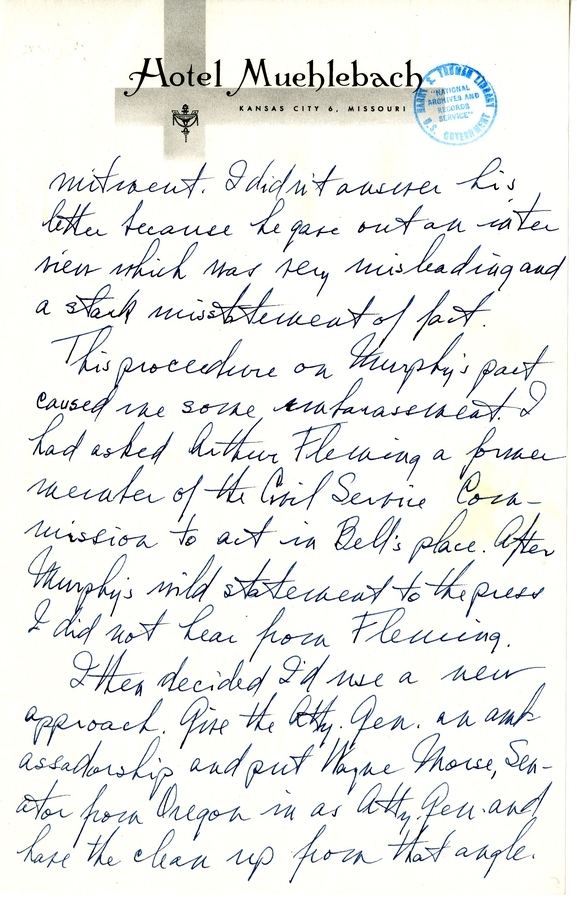 Hotel Muehlebach
KANSAS CITY 6, MISSOURI
HARRY S. TRUMAN LIBRARY
"NATIONAL
ARCHIVES AND
RECORDS
SERVICE"
U.S. GOVERNMENT
mitment. I didn't answer his
letter because he gave out an inter
view which was very misleading and
a stark misstatement of fact.
This procedure on Murphy's part
caused me some embarassment. I
had asked Arthur Fleming a former
member of the Civil Service Com-
mission to act in Bell's place. After
Murphy's wild statement to the press
I did not hear from Fleming.
I then decided I'd use a new
approach. Give the Atty. Gen. an amb-
assadorship and put Wayne Morse, Sen-
ator from Oregon in as Atty. Gen. and
have the clean up from that angle.